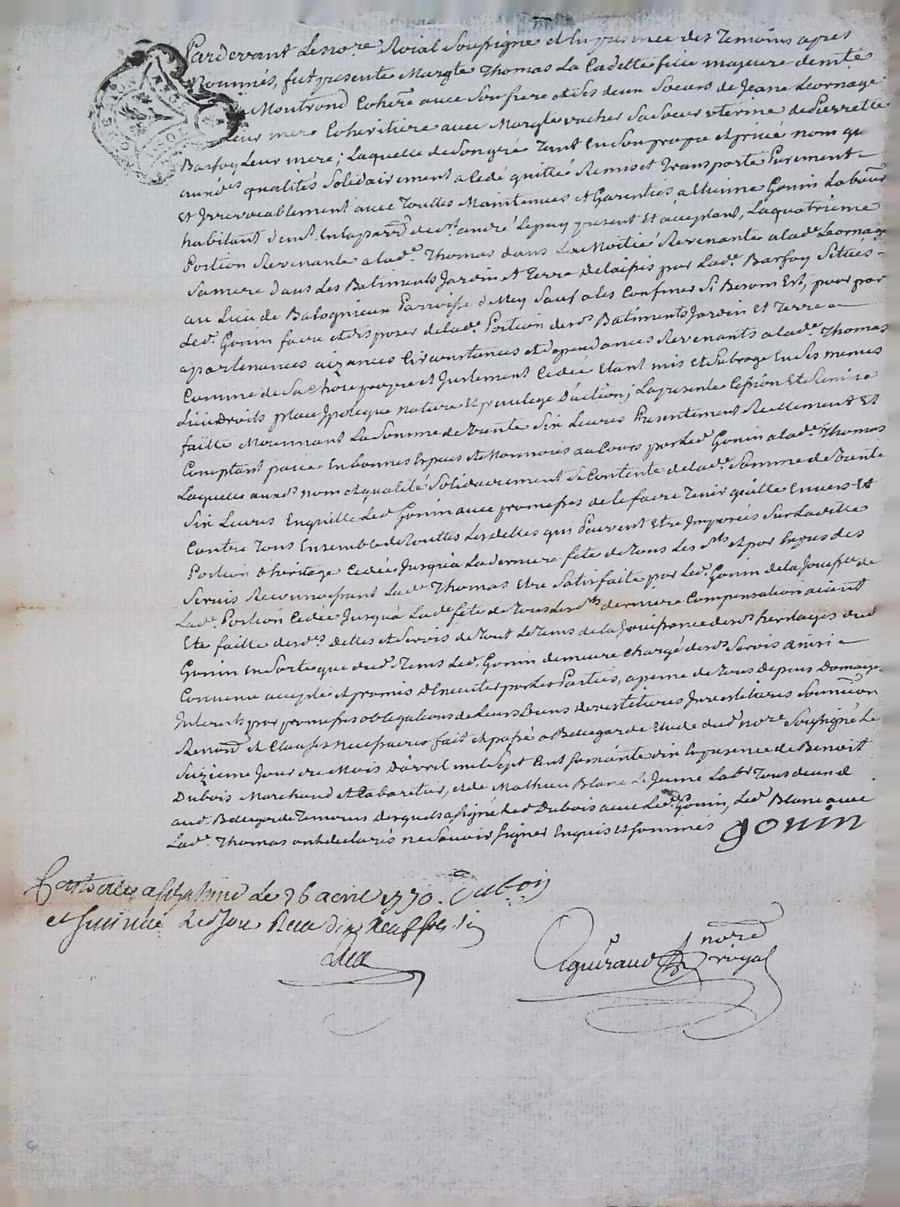 Pardevant Le no.re Roial Soussigné et En presence des Temoins apres
Nommés, fut presente Margte Thomas La Cadette fille majeure demte
a Montrond Cohere avec Son frere et Ses deux Soeurs de Jeane Leornage
Leur mere Coheritiere avec Margte vacher Sa Soeur uterine de Pierrette
Barfoy Leur mere; Laquelle de Son gré Tant En Son propre et privé nom qu
auxd.es qualités Solidairement a Cedé quitté Remis et Transporté Purement
Et Irrevocablement avec Touttes Maintenues et Garenties a Etienne Gonin Labour
habitant En la parr de st andré Lepuy present Et acceptant, La quatrieme
Portion Revenante a lad.e Thomas dans La Moitié Revenante a lad.e Leornage
Sa mere dans Les Batiments Jardin et Terre Delaissés par Lad.e Barfoy Situés
au Lieu de Balognieux Parroisse de Mey Sauf a les Confiner Si Besoin Est, pour par
Led. Gonin faire et disposer de lad.e Portion desd. Batiments Jardin et Terre
apartenances aizances Circonstances et dependances Revenants a lad.e Thomas
Comme de Sa Chose propre et Justement Cedée Etant mis et Subrogé En Ses memes
Lieu droits place Ipoteque nature Et privilege d'action; La presente Cession Et Remise
faitte Moiennant La Somme de Trente Six Livres Presentement Reellement Et
Comptant paiée En bonnes Especes et Monnoies au Cours par Led. Gonin a lad.e Thomas
Laquelle auxd. nom et qualité Solidairement Se Contente de lad.e Somme de Trente
Six Livres Enquitte Led. Gonin avec promesses de le faire Tenir quitte Envers Et
Contre Tous Ensemble de Touttes Les dettes qui Peuvent Etre Imposés Sur Laditte
Portion d'héritage Cedée Jusqu'à La derniere fête de Tous Les Sts et par Egard des
Servis Reconnoissant Lade Thomas Etre Satisfaitte par Led. Gonin de la Jouissce de
Lade Portion Cedée Jusqu'à Lad.e fete de Tous Les Sts derniere Compensation aiant
Eté faitte desd. dettes et Servis de Tout Le Tems de la Jouissance desd. héritages dud
Gonin En Sorte que dud. Tems Led. Gonin demeure Chargé desd. Servis ainsi
Convenu accepté et promis d'Executer par Les Parties, a peine de Tous Depens Domages
Interets par promesses obligations de Leurs Biens
Renon et Clauses necessaires fait et passé a Bellegarde Etude dud. nore Soussigné Le
Seizieme Jour du Mois D'avril mil Sept Cent Soixante dix En presence de Benoit
Dubois Marchand et Cabaretier, et de Mathieu Blanc Le Jeune Labr Tous deux d
aud. Bellegarde Temoins desquels a Signé Led. Dubois avec Led. Gonin, Led. Blanc avec
Lad.e Thomas ont declarés ne Savoir Signer Enquis et Sommés gonin
Le 26 avril 1770. Dubois
et Led Jour Recu dix neuf sols Six
nore
Aguiraud royal